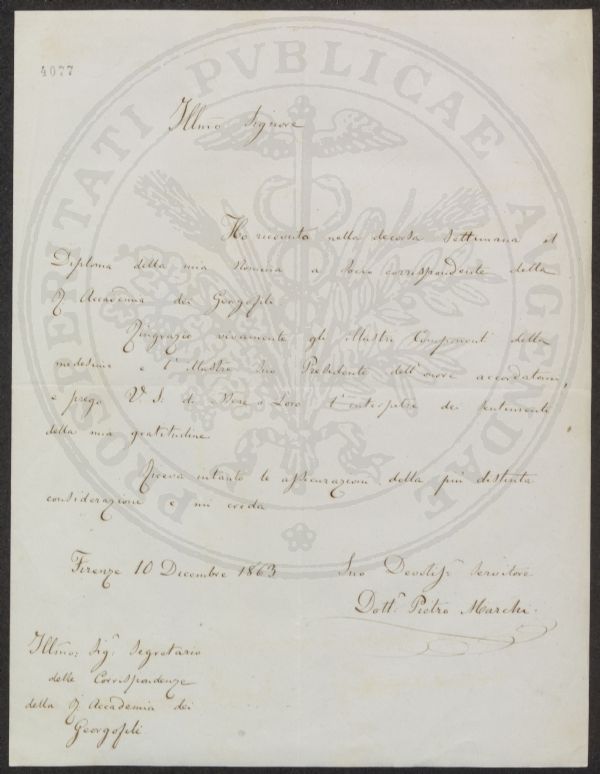 4077
PROSPERITATI PVBLICAE AVGENDAE
Illmo Signore
Ho ricevuto nella decorsa Settimana il
Diploma della mia Nomina a Socio corrispondente della
R. Accademia dei Georgofili
Ringrazio vivamente gli Illustri Componenti della
medesima e l'Illustre Suo Presidente dell'onore accordatomi,
e prego V. S. di a Loro l'interpetre dei Sentimenti
della mia gratitudine.
Riceva intanto le assicurazioni della più distinta
considerazione e mi creda
Firenze 10 Decembre 1863
Suo Devotiss. Servitore
Dott. Pietro Marchi.
Illmo: Sig. Segretario
delle Corrispondenze
della R. Accademia dei
Georgofili